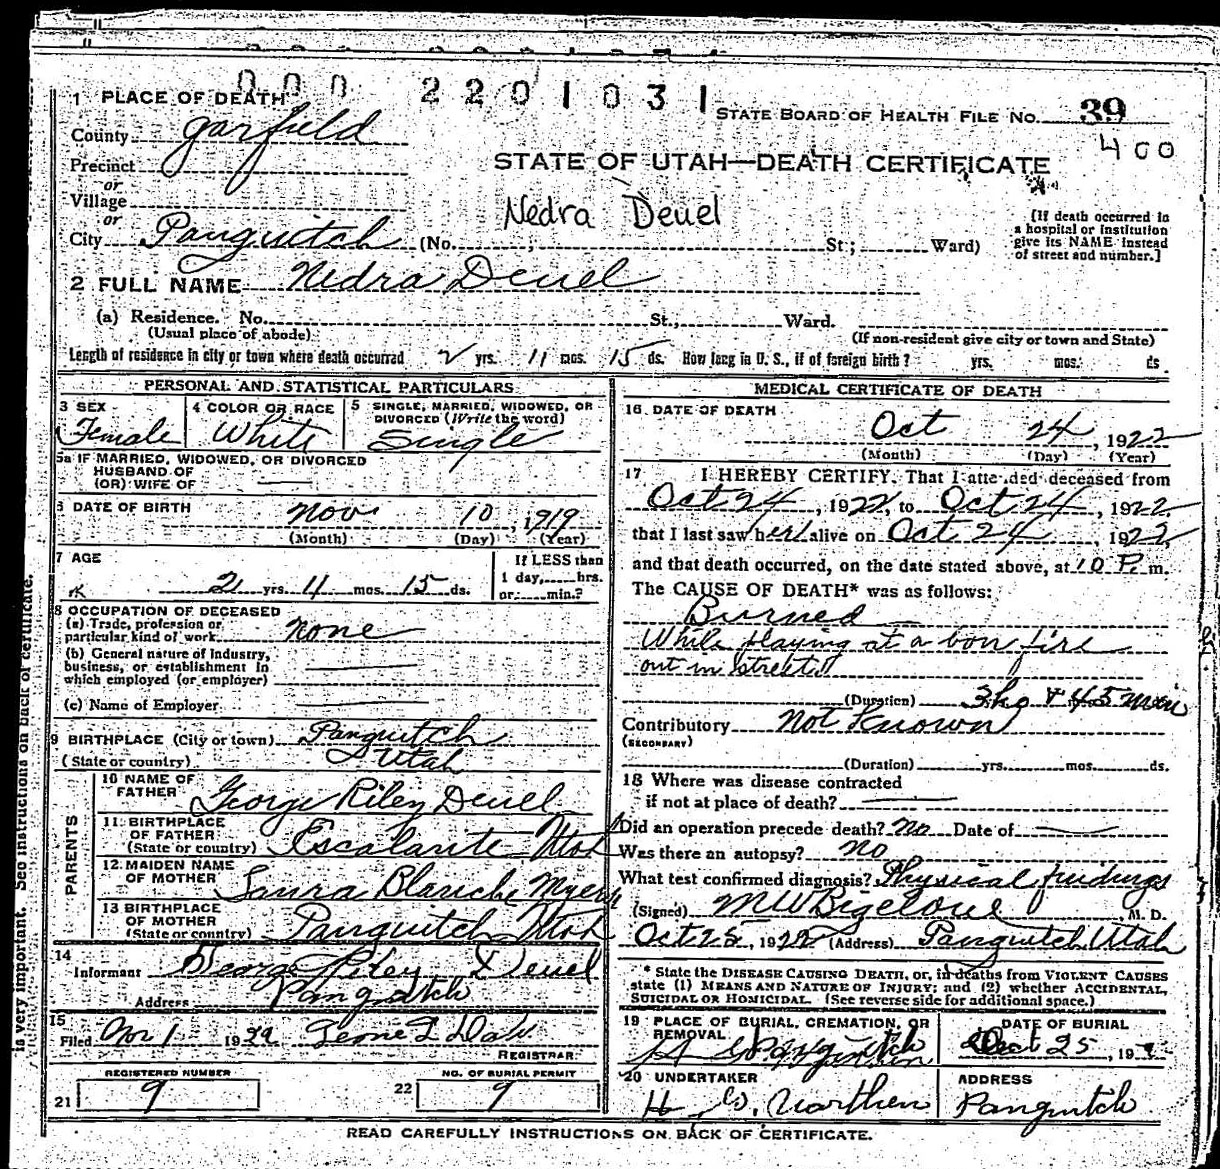 000 2201031
1 PLACE OF DEATH
STATE BOARD OF HEALTH FILE NO. 39
400
County Garfield
STATE OF UTAH—DEATH CERTIFICATE
Precinct
or
Village
or
Nedra Deuel
[If death occurred in
a hospital or institution
give its NAME instead
of street and number.]
City Panguitch (No. ; St.; Ward)
2 FULL NAME Nedra Deuel
(a) Residence. No. St., Ward.
(Usual place of abode) (If non-resident give city or town and State)
Length of residence in city or town where death occurred 2 yrs. 11 mos. 15 ds. How long in U. S., if of foreign birth? yrs. mos. ds.
PERSONAL AND STATISTICAL PARTICULARS
3 SEX
Female
4 COLOR OR RACE
White
5 SINGLE, MARRIED, WIDOWED, OR
DIVORCED (Write the word)
Single
5a IF MARRIED, WIDOWED, OR DIVORCED
HUSBAND OF
(OR) WIFE OF
6 DATE OF BIRTH Nov 10, 1919
(Month) (Day) (Year)
7 AGE
2 yrs. 11 mos. 15 ds.
If LESS than
1 day, hrs.
or min.?
8 OCCUPATION OF DECEASED
(a) Trade, profession or
particular kind of work none
(b) General nature of Industry,
business, or establishment in
which employed (or employer)
(c) Name of Employer
9 BIRTHPLACE (City or town) Panguitch
(State or country) Utah
PARENTS
10 NAME OF
FATHER George Riley Deuel
11 BIRTHPLACE
OF FATHER
(State or country) Escalante Utah
12 MAIDEN NAME
OF MOTHER Laura Blanche Myers
13 BIRTHPLACE
OF MOTHER
(State or country) Panguitch Utah
14
Informant George Riley Deuel
Address Panguitch
15
Filed Nov 1 1922
REGISTRAR
REGISTERED NUMBER
21 9
NO. OF BURIAL PERMIT
22 9
MEDICAL CERTIFICATE OF DEATH
16 DATE OF DEATH
Oct 24, 1922
(Month) (Day) (Year)
17 I HEREBY CERTIFY, That I attended deceased from
Oct 24, 1922, to Oct 24, 1922
that I last saw her alive on Oct 24, 1922,
and that death occurred, on the date stated above, at 10 P. m.
The CAUSE OF DEATH* was as follows:
Burned
While playing at a bon fire
out in street
(Duration) 3 hrs & 45 min
Contributory Not Known
(SECONDARY)
(Duration) yrs. mos. ds.
18 Where was disease contracted
if not at place of death?
Did an operation precede death? No Date of
Was there an autopsy? No
What test confirmed diagnosis? Physical findings
(Signed) M W Bigelow, M. D.
Oct 25, 1922 (Address) Panguitch Utah
* State the DISEASE CAUSING DEATH, or, in deaths from VIOLENT CAUSES
state (1) MEANS AND NATURE OF INJURY; and (2) whether ACCIDENTAL,
SUICIDAL OR HOMICIDAL. (See reverse side for additional space.)
19 PLACE OF BURIAL, CREMATION, OR
REMOVAL Panguitch
DATE OF BURIAL
Oct 25, 19
20 UNDERTAKER
ADDRESS
Panguitch
READ CAREFULLY INSTRUCTIONS ON BACK OF CERTIFICATE.
is very important. See instructions on back of certificate.